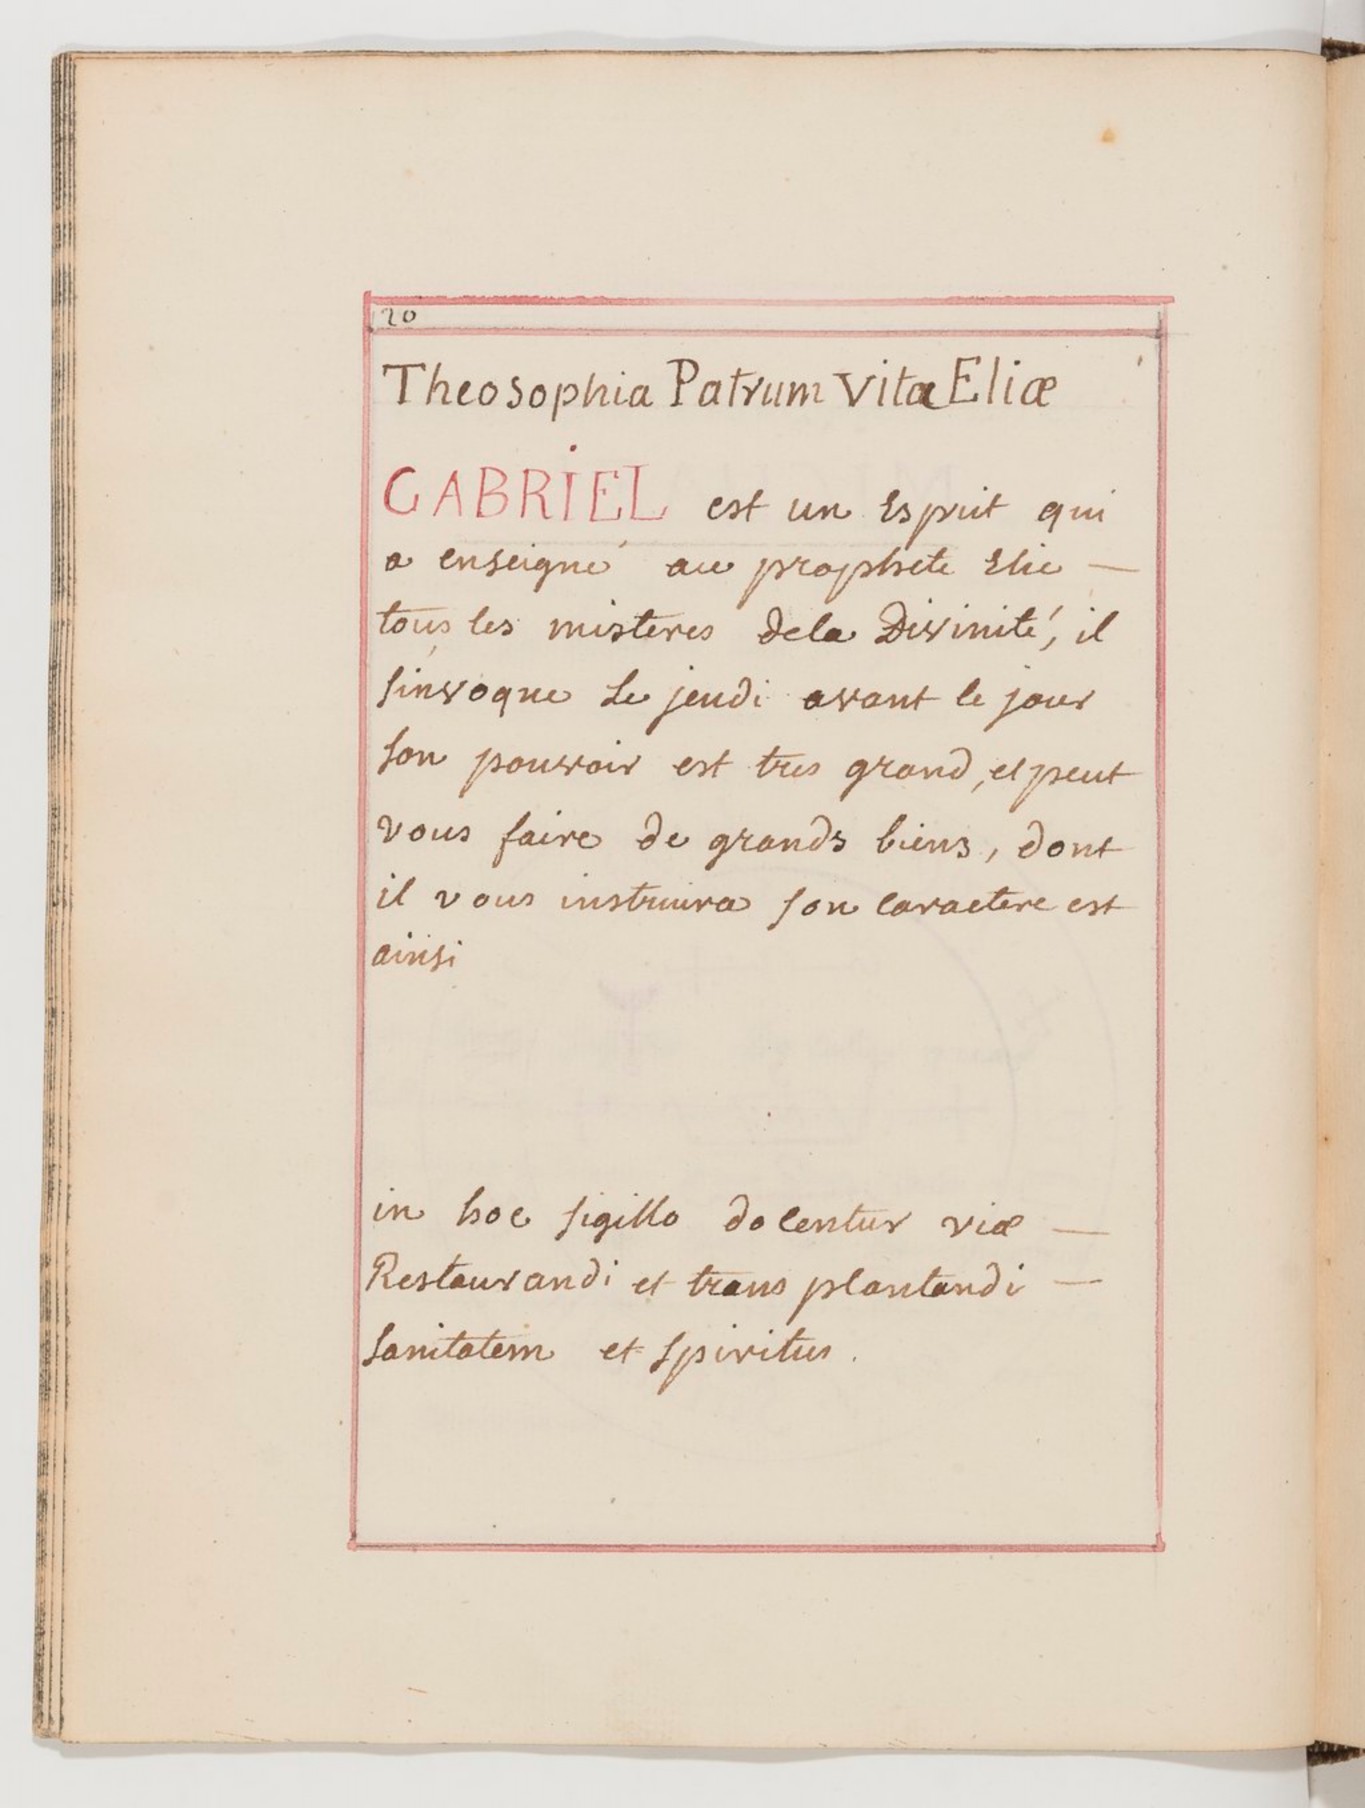 20
Theosophia Patrum Vita Eliæ
GABRIEL est un Esprit qui
a enseigné au prophete Elie —
tous les misteres dela Divinité, il
s'invoque Le jeudi avant le jour
son pouvoir est tres grand, et peut
vous faire de grands biens, dont
il vous instruira son caractere est
ainsi
in hoc sigillo docentur viæ —
Restaurandi et trans plantandi —
sanitatem et spiritus.